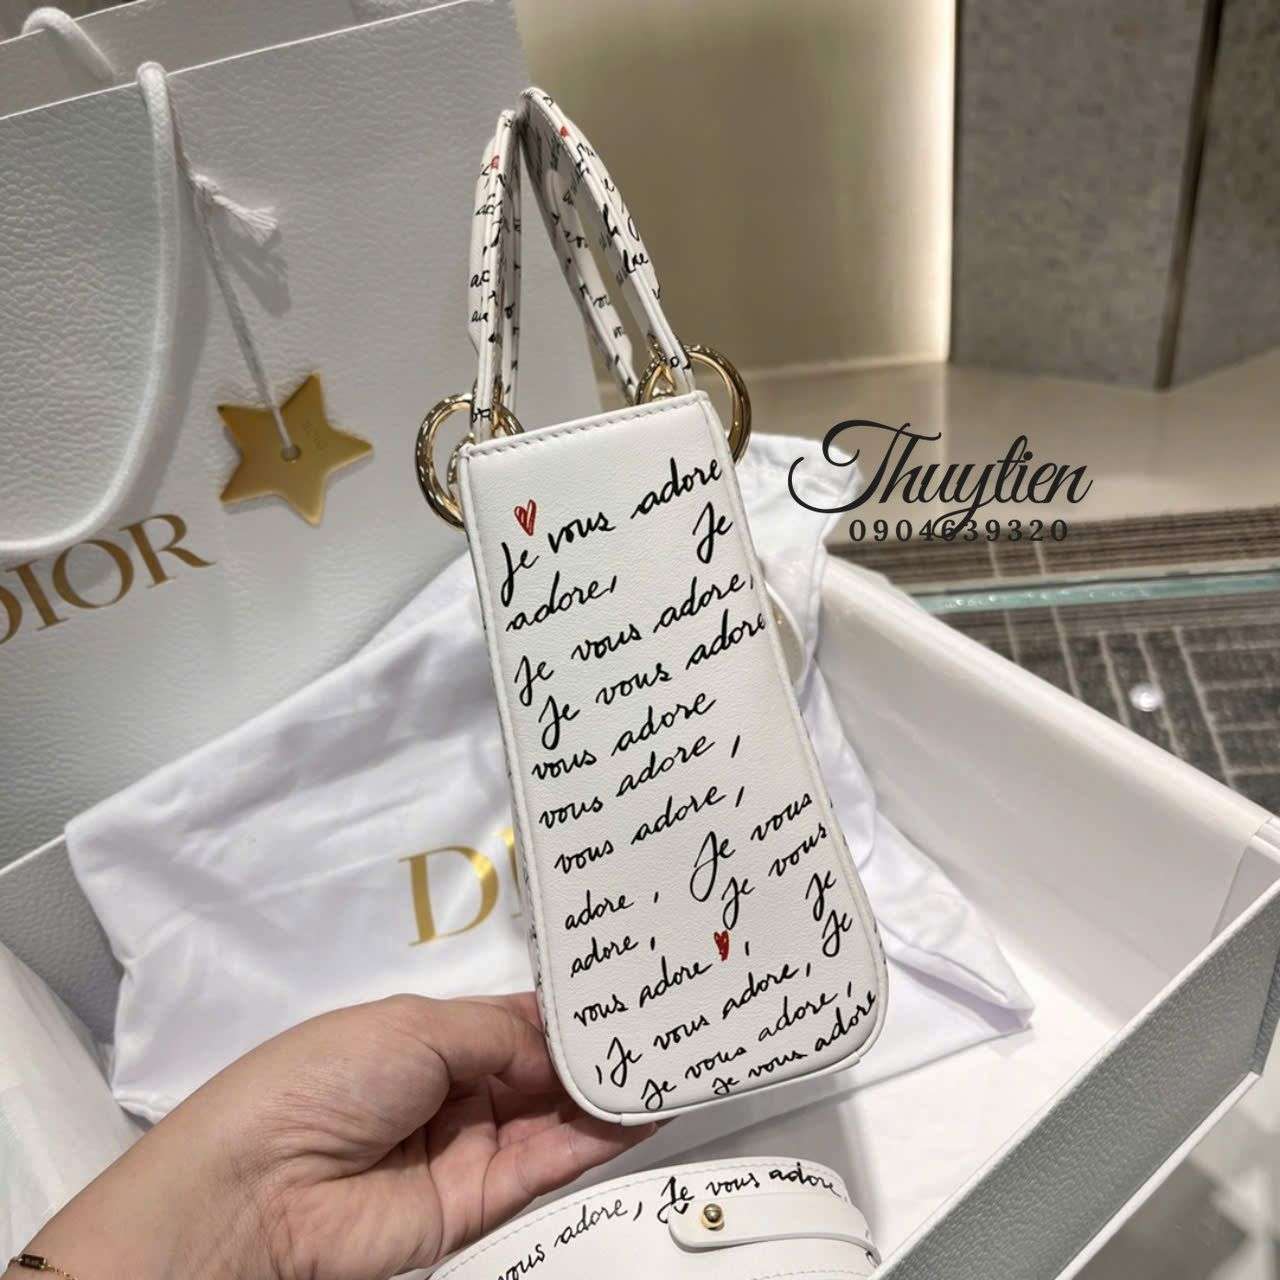 DIOR
Thuytien
0904639320
Je vous adore
Je
adore,
Je vous adore,
Je vous adore
vous adore
vous adore,
vous adore,
Je vous
adore, Je vous
adore, Je
vous adore, Je
, Je vous adore,
Je vous adore,
Je vous adore
vous adore, Je vous adore,